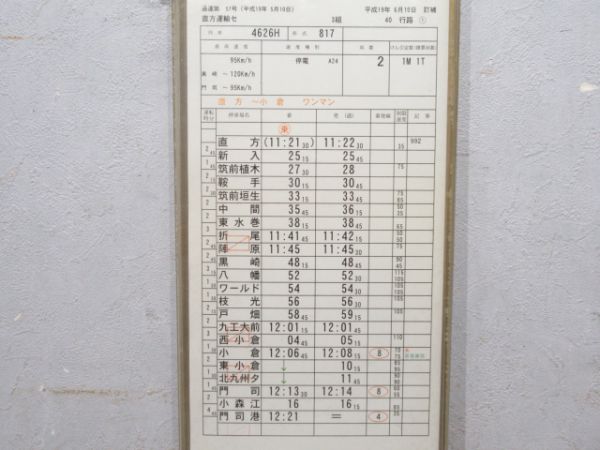 直方運輸セ 3組 40 行路 ①
4626H 817
95Km/h 停電 A24 2 1M 1T
黒崎 ～120Km/h
門司 ～95Km/h
直方 ～小倉 ワンマン
東
直方 (11:21 30) 11:22 30 35 992
新入 25 15 25 45
筑前植木 27 30 28 75
鞍手 30 15 30 45
筑前垣生 33 15 33 45
中間 35 45 36 15
東水巻 38 15 38 45
折尾 11:41 45 11:42 15
陣原 11:45 11:45 30
黒崎 48 15 48 45
八幡 52 52 30
ワールド 54 54 30
枝光 56 56 30
戸畑 58 45 59 15 100
九工大前 12:01 15 12:01 45
西小倉 04 45 05 15 110
小倉 12:06 45 12:08 15 8
東小倉 ↓ 10 15
北九州タ ↓ 11 45
門司 12:13 30 12:14 8
小森江 16 16 15
門司港 12:21 ＝ 4